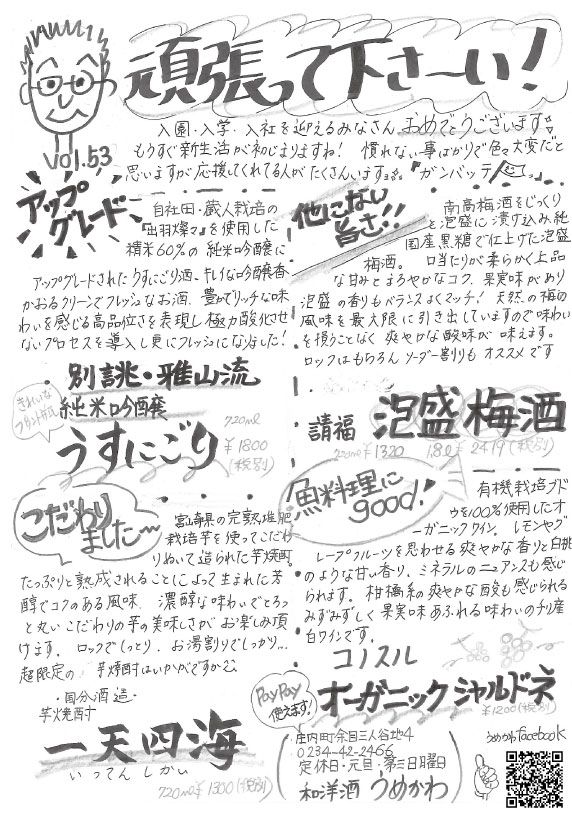 頑張って下さ〜い!
vol.53
入園・入学・入社を迎えるみなさん おめでとうございます
もうすぐ新生活が初じまりますね! 慣れない事ばかりで色々大変だと
思いますが応援してくれてる人がたくさんいますよ。『ガンバッテ』
アップ
グレード
自社田・蔵人栽培の
『出羽燦々』を使用した
精米60%の 純米吟醸に
アップグレードされた うすにごり酒。キレイな吟醸香
かおるクリーンでフレッシュなお酒。豊かでリッチな味
わいを感じる高品位さを表現し 極力酸化させ
ないプロセスを導入し更にフレッシュになりました!
別誂・雅山流
きれいな
純米吟醸
うすにごり
720ml
¥1800
(税別)
他にない
旨さ!!
南高梅酒をじっくり
と泡盛に漬け込み、純
国産黒糖で仕上げた泡盛
梅酒。 口当たりが柔らかく上品
な甘みとまろやかなコク、果実味があり
泡盛の香りもバランスよくマッチ! 天然の梅の
風味を最大限に引き出していますので味わい
を損うことなく 爽やかな酸味が 味えます。
ロックはもちろん ソーダー割りも オススメです
請福 泡盛梅酒
720ml ¥1320 1.8l ¥2419 (税別)
こだわり
ました〜
宮崎県の完熟堆肥
栽培芋を使ってこだわ
りぬいて造られた芋焼酎。
たっぷりと熟成されることによって生まれた芳
醇でコクのある風味、濃醇な味わいでとろっ
と丸い こだわりの芋の美味しさが お楽しみ頂
けます。ロックでしっとり、お湯割りでしっかり…
超限定の 芋焼酎はいかがですか
・国分酒造・
芋焼酎
一天四海
いってん しかい
720ml ¥1300 (税別)
魚料理に
good!
有機栽培ブド
ウを100%使用したオ
ーガニックワイン。レモンやグ
レープフルーツを思わせる爽やかな香りと白桃
のような甘い香り、ミネラルのニュアンスも感じ
られます。柑橘系の爽やかな酸も感じられる
みずみずしく果実味あふれる味わいのチリ産
白ワインです。
コノスル
オーガニック シャルドネ
¥1200(税別)
PayPay
使えます!
庄内町余目三人谷地4
0234-42-2466
定休日・元旦・第三日曜日
和洋酒 うめかわ
うめかわfacebook